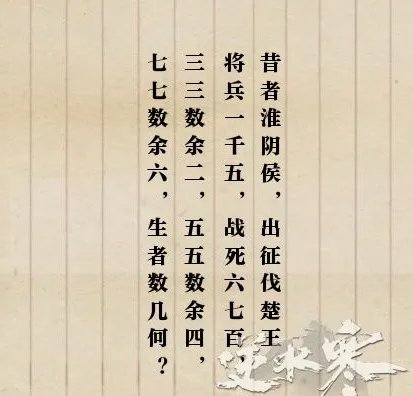 昔者淮阴侯，出征伐楚王
将兵一千五，战死六七百，
三三数余二，五五数余四，
七七数余六，生者数几何？
逆水寒